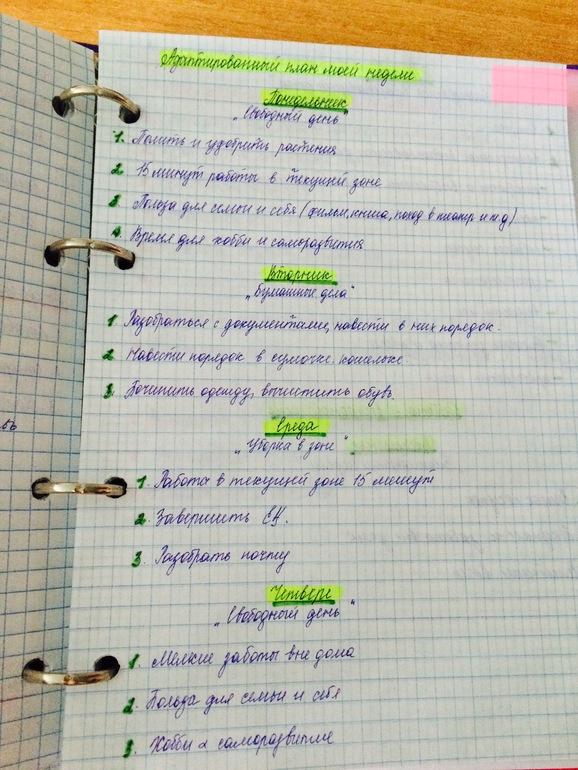 Адаптированный план моей недели
Понедельник
„Свободный день"
1. Полить и удобрить растения
2. 15 минут работы в текущей зоне
3. Польза для семьи и себя (фильм, книга, поход в театр и т.д)
4. Время для хобби и саморазвития
Вторник
„Бумажные дела"
1. Разобраться с документами, навести в них порядок.
2. Навести порядок в сумочке. кошельке.
3. Починить одежду, вычистить обувь.
Среда
„Уборка в зоне"
1. Работа в текущей зоне 15 минут
2. Завершить ЕН.
3. Разобрать почту
Четверг
„Свободный день"
1. Мелкие заботы вне дома
2. Польза для семьи и себя
3. Хобби и саморазвитие